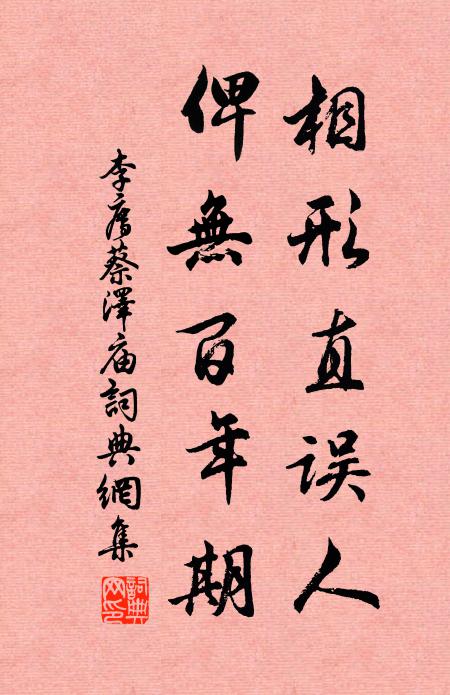 相形直误人
俾無百年期
李廌蔡澤庙詞典網集
詞典網印